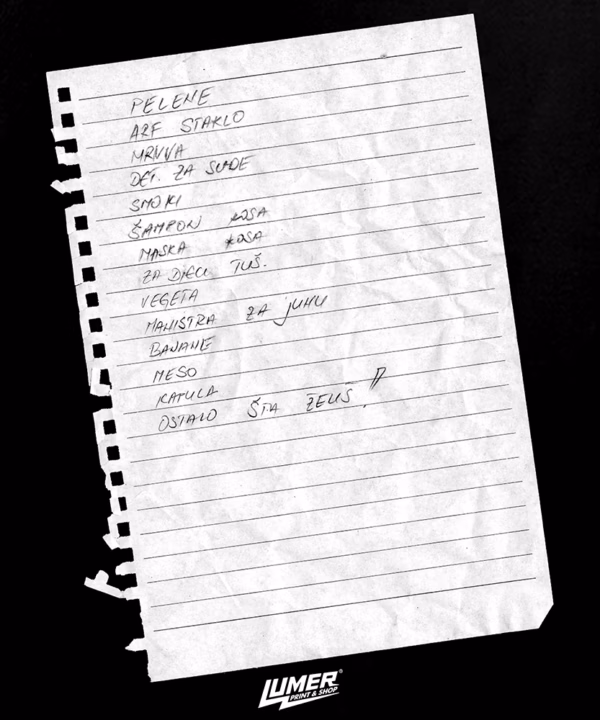 PELENE
ARF STAKLO
MRNVA
DET. ZA SUĐE
SMOKI
ŠAMPON KOSA
MASKA KOSA
ZA DJECU TUŠ.
VEGETA
MANISTRA ZA JUHU
BANANE
MESO
KAPULA
OSTALO ŠTA ŽELIŠ !
LUMER®
PRINT & SHOP